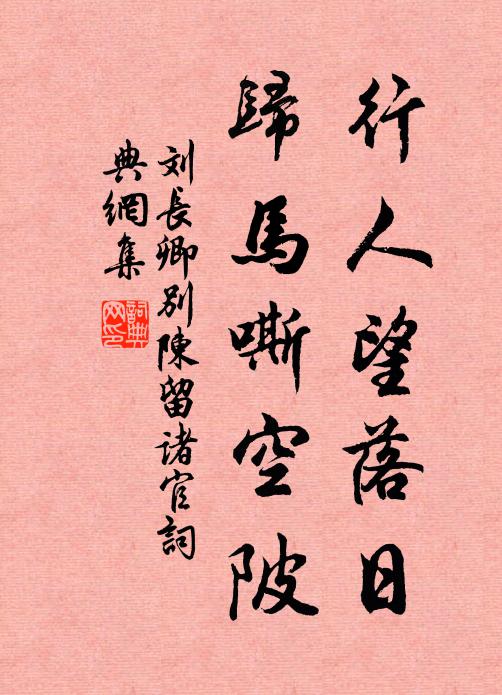 行人望落日
歸馬嘶空陂
刘長卿別陳留諸官詞
典網集
詞典網印